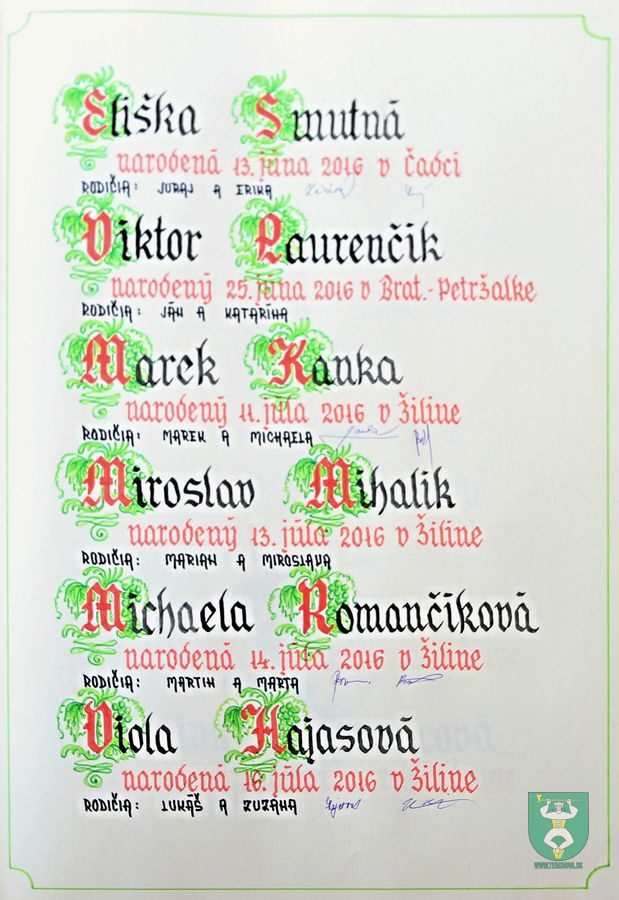 Eliška Smutná
narodená 13. júna 2016 v Čadci
RODIČIA: JURAJ A ERIKA
Viktor Laurenčík
narodený 25. júna 2016 v Brat.-Petržalke
RODIČIA: JÁN A KATARÍNA
Marek Kanka
narodený 11. júla 2016 v Žiline
RODIČIA: MAREK A MICHAELA
Miroslav Mihalik
narodený 13. júla 2016 v Žiline
RODIČIA: MARIAN A MIROSLAVA
Michaela Romančíková
narodená 14. júla 2016 v Žiline
RODIČIA: MARTIN A MARTA
Viola Hajasová
narodená 16. júla 2016 v Žiline
RODIČIA: LUKÁŠ A ZUZANA
WWW.TERCHOVA.SK